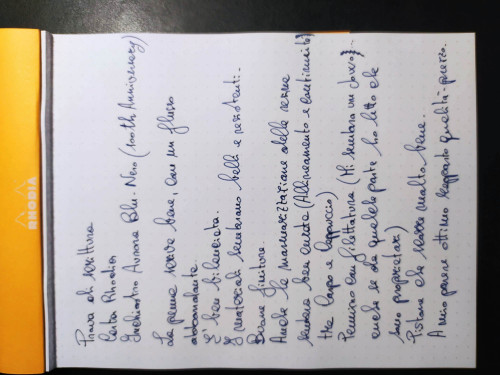 RHODIA
Prova di scrittura
Carta Rhodia
Inchiostro Aurora Blu-Nero (100th Anniversary)
La penna scrive bene, con un flusso
abbondante.
E' ben bilanciata.
I materiali sembrano belli e resistenti.
Buona finitura.
Anche la marmorizzazione della resina
sembra ben curata (Allineamento e continuità)
tra Corpo e Cappuccio)
Pennino con filettatura (Mi sembra un Jowo,
anche se da qualche parte ho letto che
sono proprietari)
Pistone che scorre molto bene.
A mio parere ottimo rapporto qualità-prezzo.